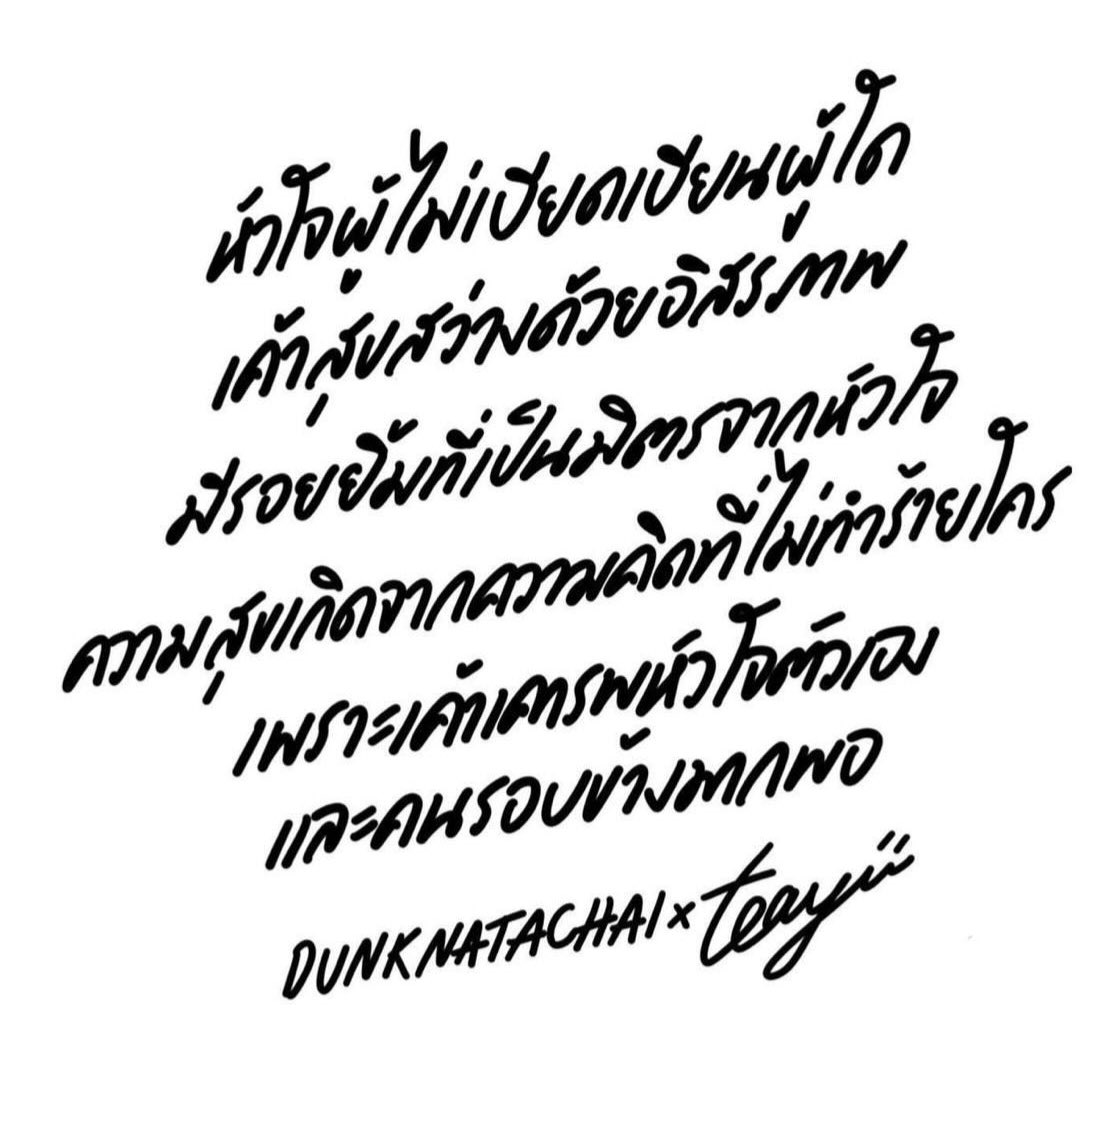 หัวใจผู้ไม่เบียดเบียนผู้ใด
เค้าสุขสว่างด้วยอิสรภาพ
มีรอยยิ้มที่เป็นมิตรจากหัวใจ
ความสุขเกิดจากความคิดที่ไม่ทำร้ายใคร
เพราะเค้าเคารพหัวใจตัวเอง
และคนรอบข้างมากพอ
DUNKNATACHAI x teayii